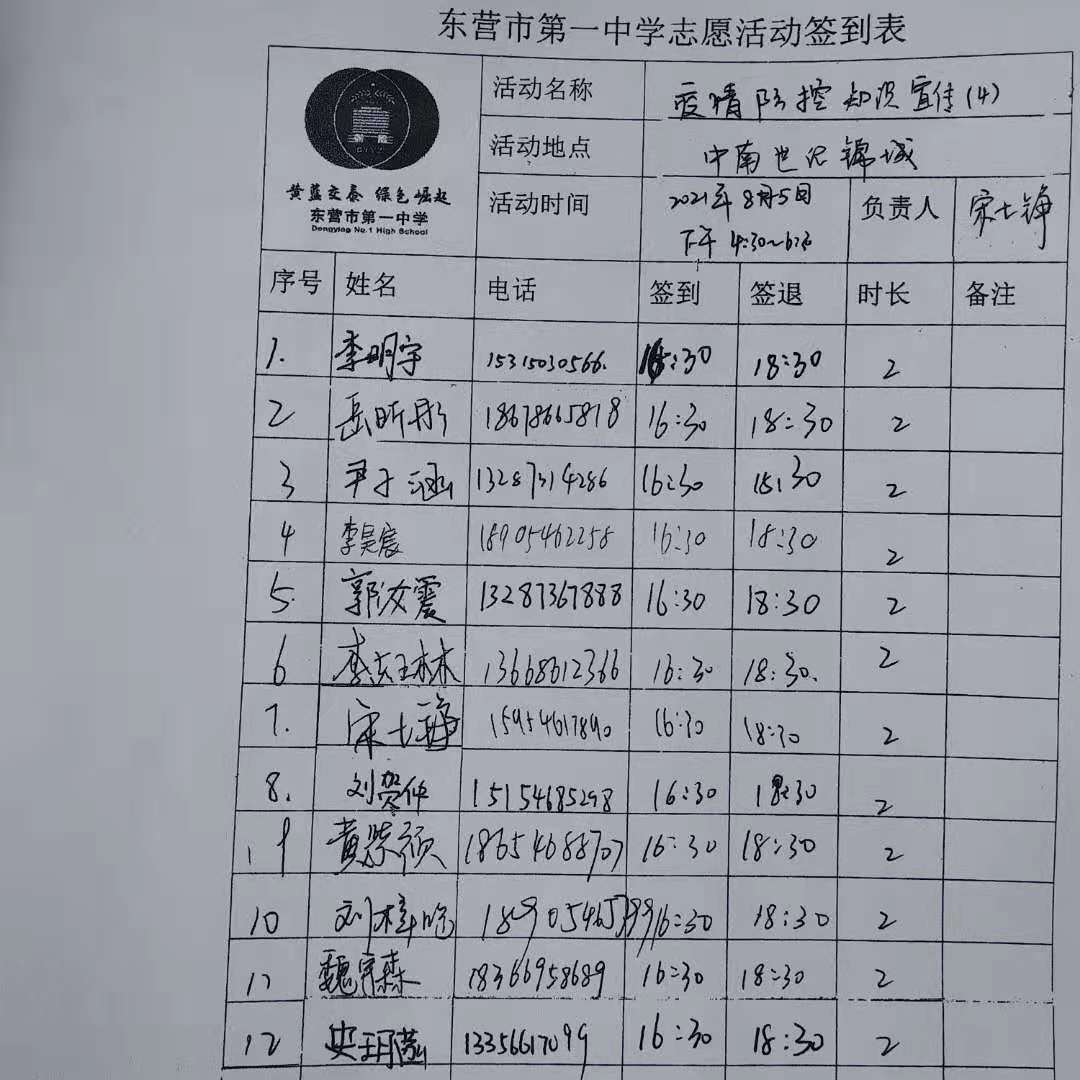 东营市第一中学志愿活动签到表
活动名称 疫情防控知识宣传(4)
活动地点 中南世纪锦城
黄蓝交泰 绿色崛起
东营市第一中学
Dongying No.1 High School
活动时间 2021年8月5日 负责人 宋士铮
下午 4:30~6:30
序号 姓名 电话 签到 签退 时长 备注
1. 李明宇 15315030566. 16:30 18:30 2
2 岳昕彤 18678665878 16:30 18:30 2
3 尹子涵 13287314286 16:30 18:30 2
4 李昊宸 18905462258 16:30 18:30 2
5. 郭汝震 13287367888 16:30 18:30 2
6 李 13668612366 16:30 18:30. 2
7. 宋士铮 15954617890 16:30 18:30 2
8. 刘贺仲 15154685298 16:30 18:30 2
9 黄紫颀 18654688707 16:30 18:30 2
10 刘梓 16:30 18:30 2
11 魏宇森 18366958689 16:30 18:30 2
12 史玥 13356617099 16:30 18:30 2